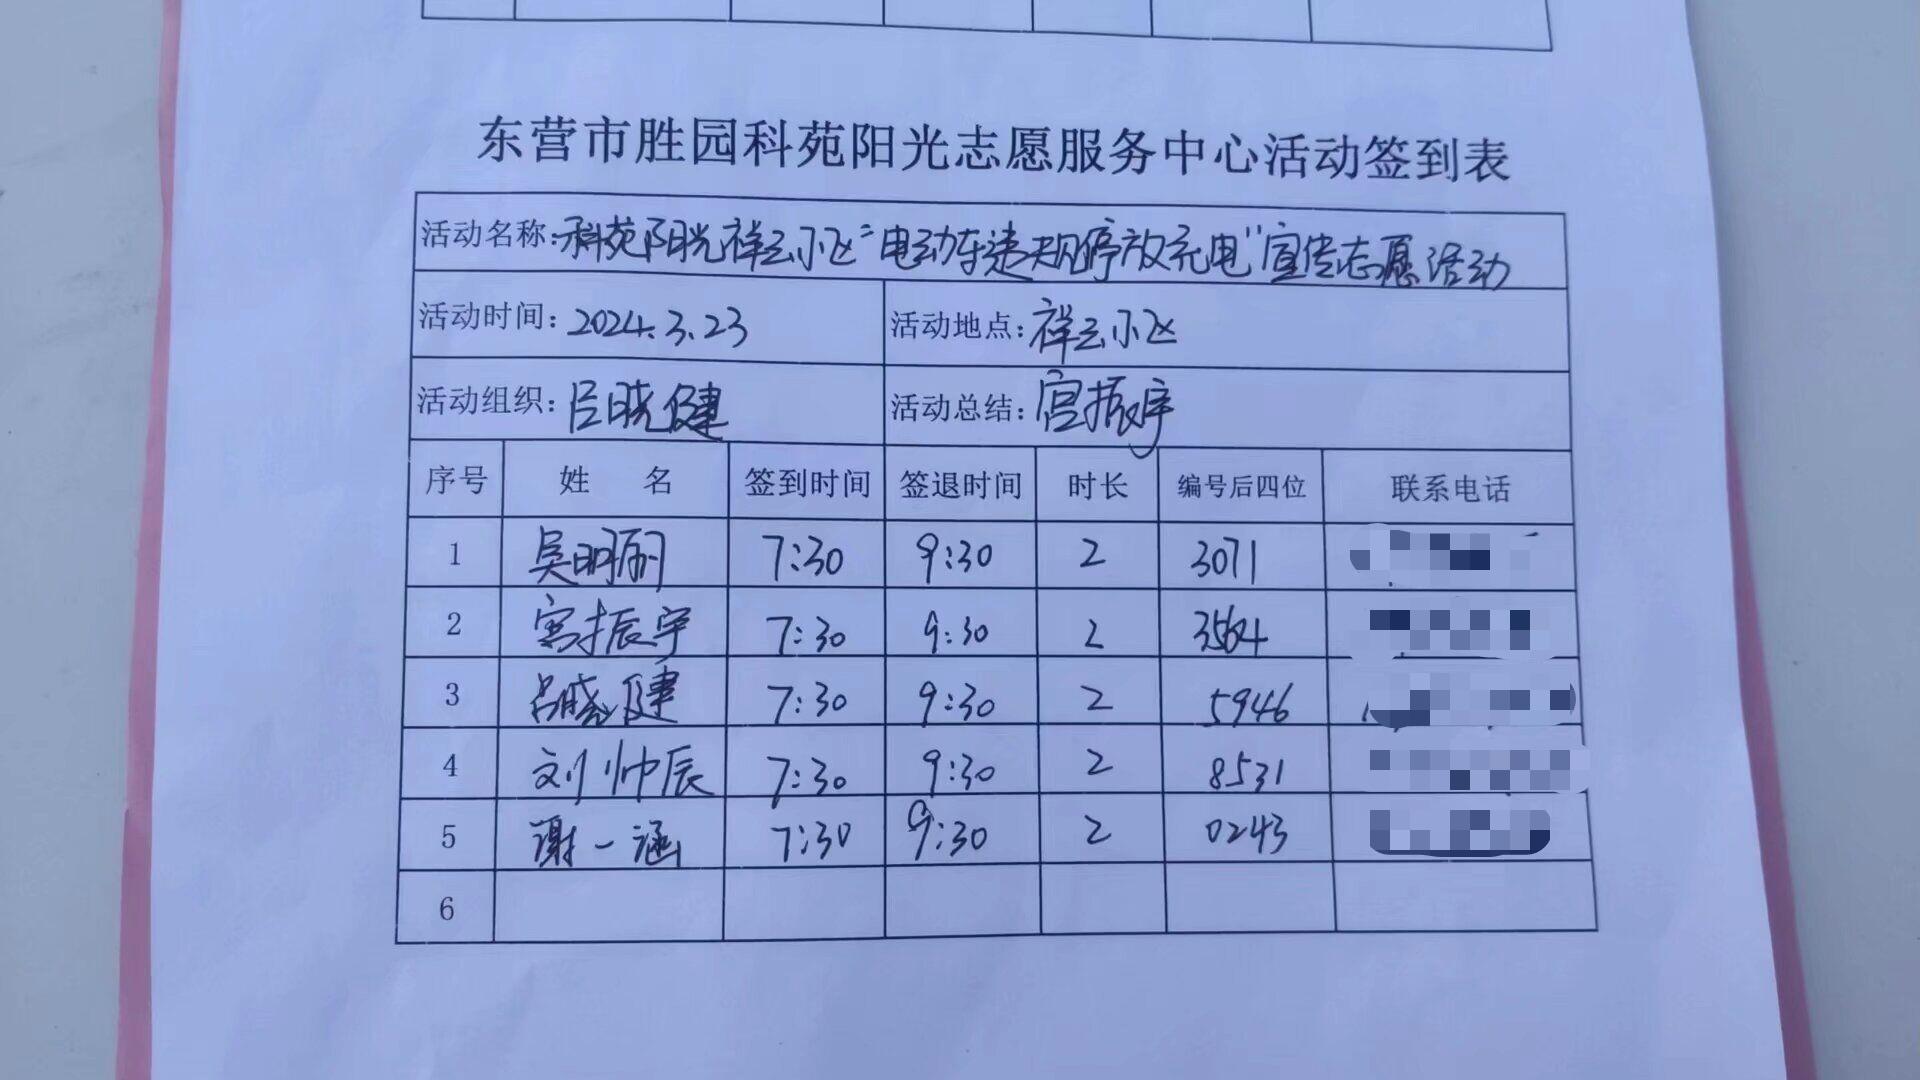 东营市胜园科苑阳光志愿服务中心活动签到表
活动名称:科苑阳光祥云小区"电动车违规停放充电"宣传志愿活动
活动时间:2024.3.23 活动地点:祥云小区
活动组织:吕晓健 活动总结:宫振宇
序号 姓 名 签到时间 签退时间 时长 编号后四位 联系电话
1 吴明丽 7:30 9:30 2 3071
2 宫振宇 7:30 9:30 2 3564
3 吕晓健 7:30 9:30 2 5946
4 刘帅辰 7:30 9:30 2 8531
5 谢一涵 7:30 9:30 2 0243
6